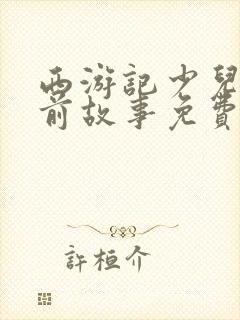 西游記少兒
前故事免費
許桓介